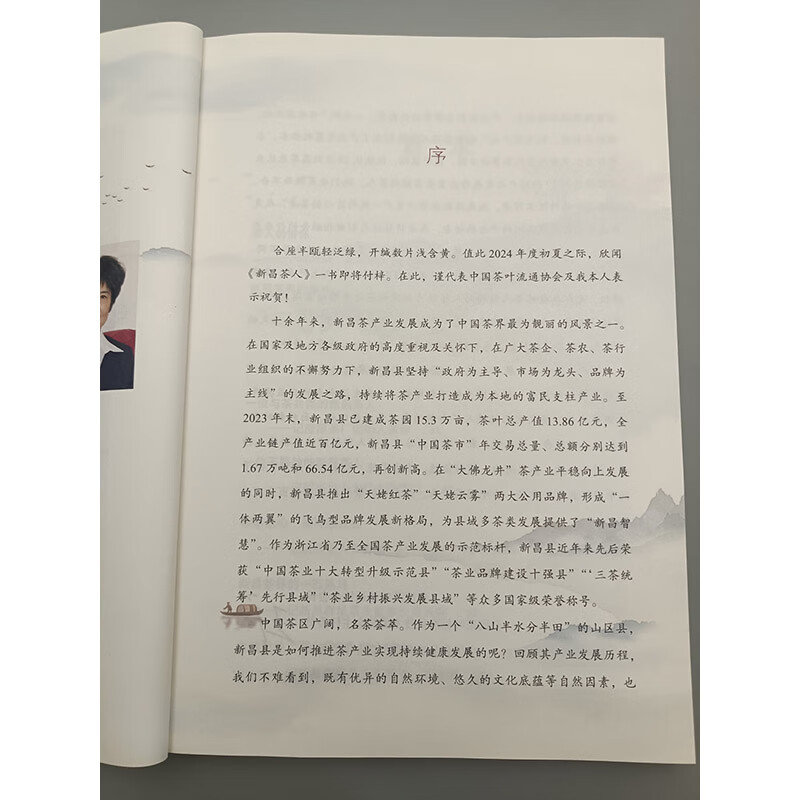 序
合座半瓯轻泛绿，开缄数片浅含黄。值此 2024 年度初夏之际，欣闻
《新昌茶人》一书即将付梓。在此，谨代表中国茶叶流通协会及我本人表
示祝贺！
十余年来，新昌茶产业发展成为了中国茶界最为靓丽的风景之一。
在国家及地方各级政府的高度重视及关怀下，在广大茶企、茶农、茶行
业组织的不懈努力下，新昌县坚持“政府为主导、市场为龙头、品牌为
主线”的发展之路，持续将茶产业打造成为本地的富民支柱产业。至
2023 年末，新昌县已建成茶园 15.3 万亩，茶叶总产值 13.86 亿元，全
产业链产值近百亿元，新昌县“中国茶市”年交易总量、总额分别达到
1.67 万吨和 66.54 亿元，再创新高。在“大佛龙井”茶产业平稳向上发展
的同时，新昌县推出“天姥红茶”“天姥云雾”两大公用品牌，形成“一
体两翼”的飞鸟型品牌发展新格局，为县域多茶类发展提供了“新昌智
慧”。作为浙江省乃至全国茶产业发展的示范标杆，新昌县近年来先后荣
获“中国茶业十大转型升级示范县”“茶业品牌建设十强县”“‘三茶统
筹’先行县域”“茶业乡村振兴发展县域”等众多国家级荣誉称号。
中国茶区广阔，名茶荟萃。作为一个“八山半水分半田”的山区县，
新昌县是如何推进茶产业实现持续健康发展的呢？回顾其产业发展历程，
我们不难看到，既有优异的自然环境、悠久的文化底蕴等自然因素，也